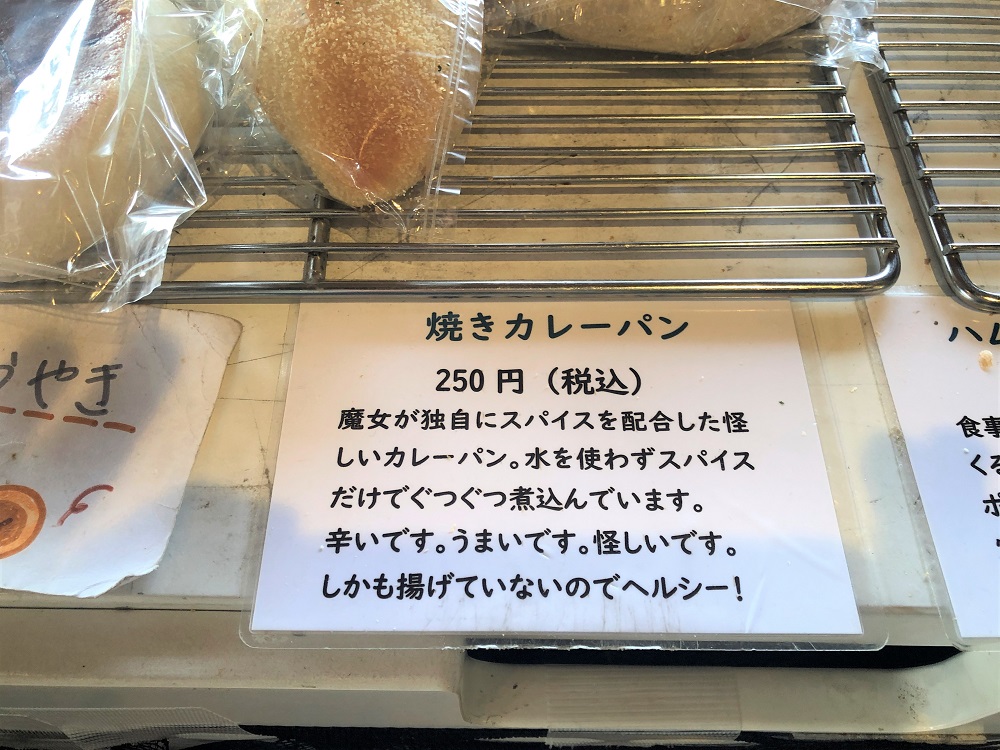 焼きカレーパン
250 円（税込）
魔女が独自にスパイスを配合した怪
しいカレーパン。水を使わずスパイス
だけでぐつぐつ煮込んでいます。
辛いです。うまいです。怪しいです。
しかも揚げていないのでヘルシー！
やき
ハム
食事
くる
ポ